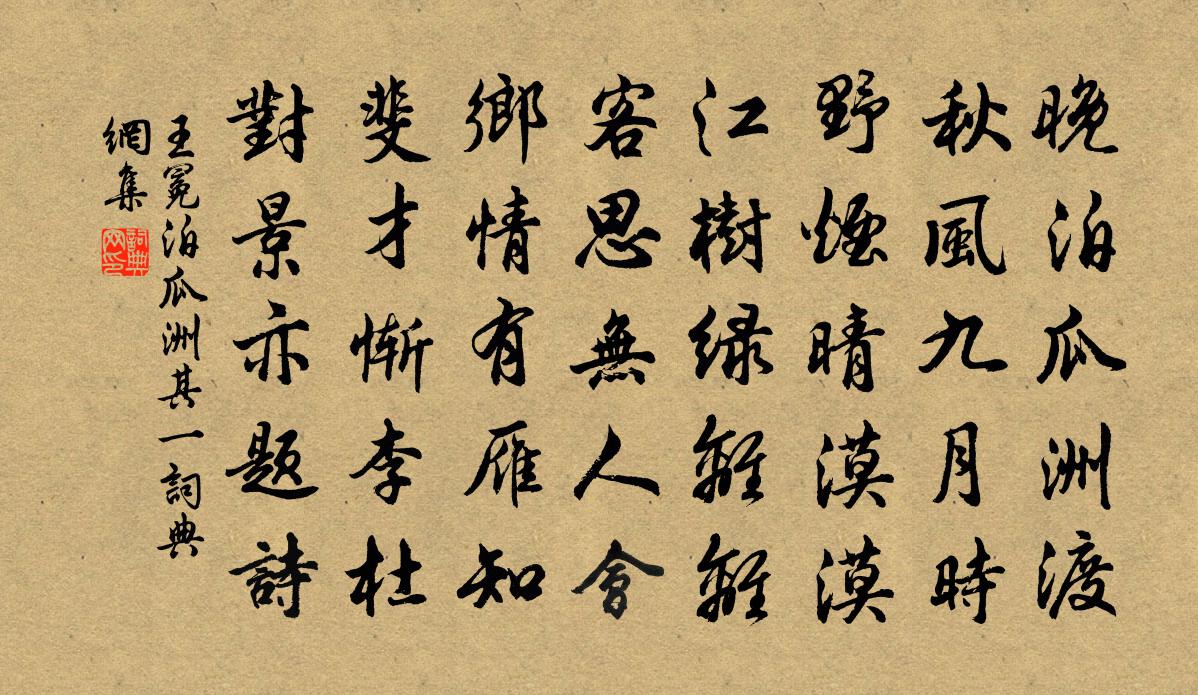 晚泊瓜洲渡
秋風九月時
野煙晴漠漠
江樹緑離離
客思無人會
鄉情有雁知
斐才慚李杜
對景亦題詩
王冕泊瓜洲其一詞典
網集
詞典
网印